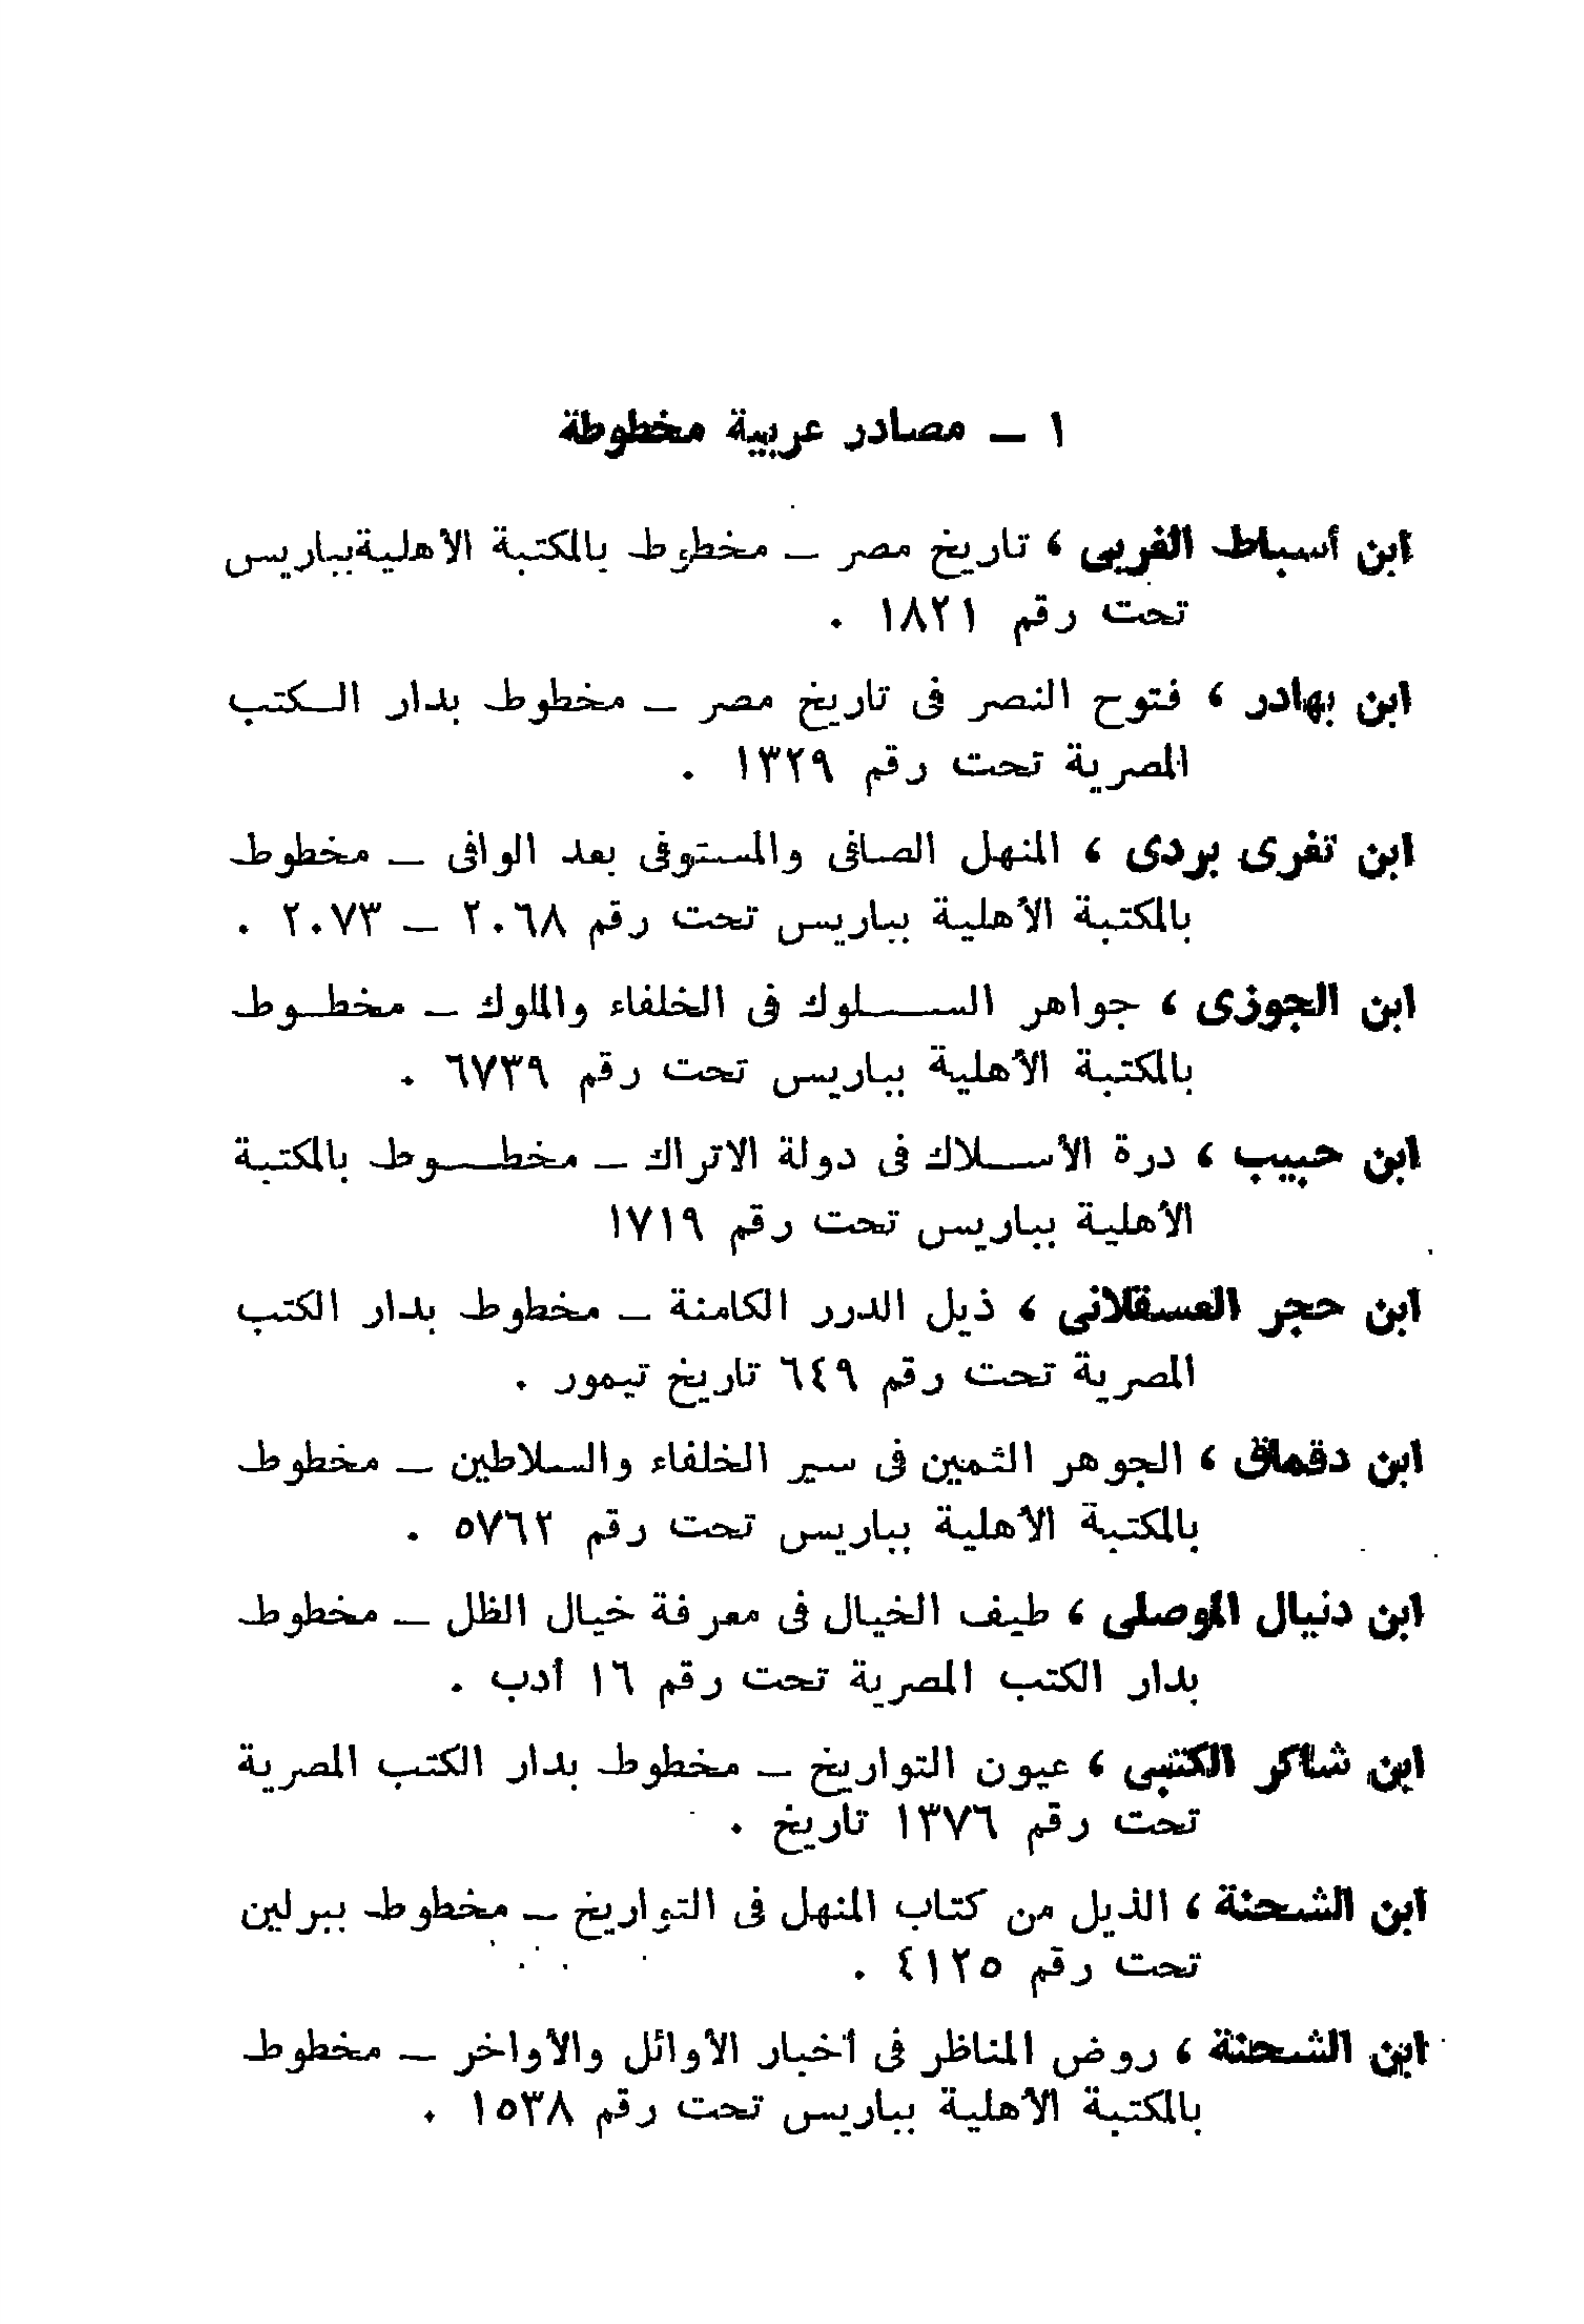 ١ – مصادر عربية مخطوطة
ابن أسباط الغربى ، تاريخ مصر – مخطوط بالمكتبة الأهلية بباريس
تحت رقم ١٨٢١ .
ابن بهادر ، فتوح النصر فى تاريخ مصر – مخطوط بدار الكتب
المصرية تحت رقم ١٣٢٩ .
ابن تغرى بردى ، المنهل الصافى والمستوفى بعد الوافى – مخطوط
بالمكتبة الأهلية بباريس تحت رقم ٢٠٦٨ – ٢٠٧٣ .
ابن الجوزى ، جواهر السلوك فى الخلفاء والملوك – مخطوط
بالمكتبة الأهلية بباريس تحت رقم ٦٧٣٩ .
ابن حبيب ، درة الأسلاك فى دولة الاتراك – مخطوط بالمكتبة
الأهلية بباريس تحت رقم ١٧١٩
ابن حجر العسقلانى ، ذيل الدرر الكامنة – مخطوط بدار الكتب
المصرية تحت رقم ٦٤٩ تاريخ تيمور .
ابن دقماق ، الجوهر الثمين فى سير الخلفاء والسلاطين – مخطوط
بالمكتبة الأهلية بباريس تحت رقم ٥٧٦٢ .
ابن دنيال الموصلى ، طيف الخيال فى معرفة خيال الظل – مخطوط
بدار الكتب المصرية تحت رقم ١٦ أدب .
ابن شاكر الكتبى ، عيون التواريخ – مخطوط بدار الكتب المصرية
تحت رقم ١٣٧٦ تاريخ .
ابن الشحنة ، الذيل من كتاب المنهل فى التواريخ – مخطوط ببرلين
تحت رقم ٤١٢٥ .
ابن الشحنة ، روض المناظر فى أخبار الأوائل والأواخر – مخطوط
بالمكتبة الأهلية بباريس تحت رقم ١٥٣٨ .